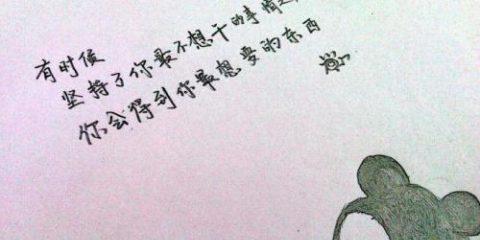 有时候
坚持了你最不想干的事情之
你会得到你最想要的东西